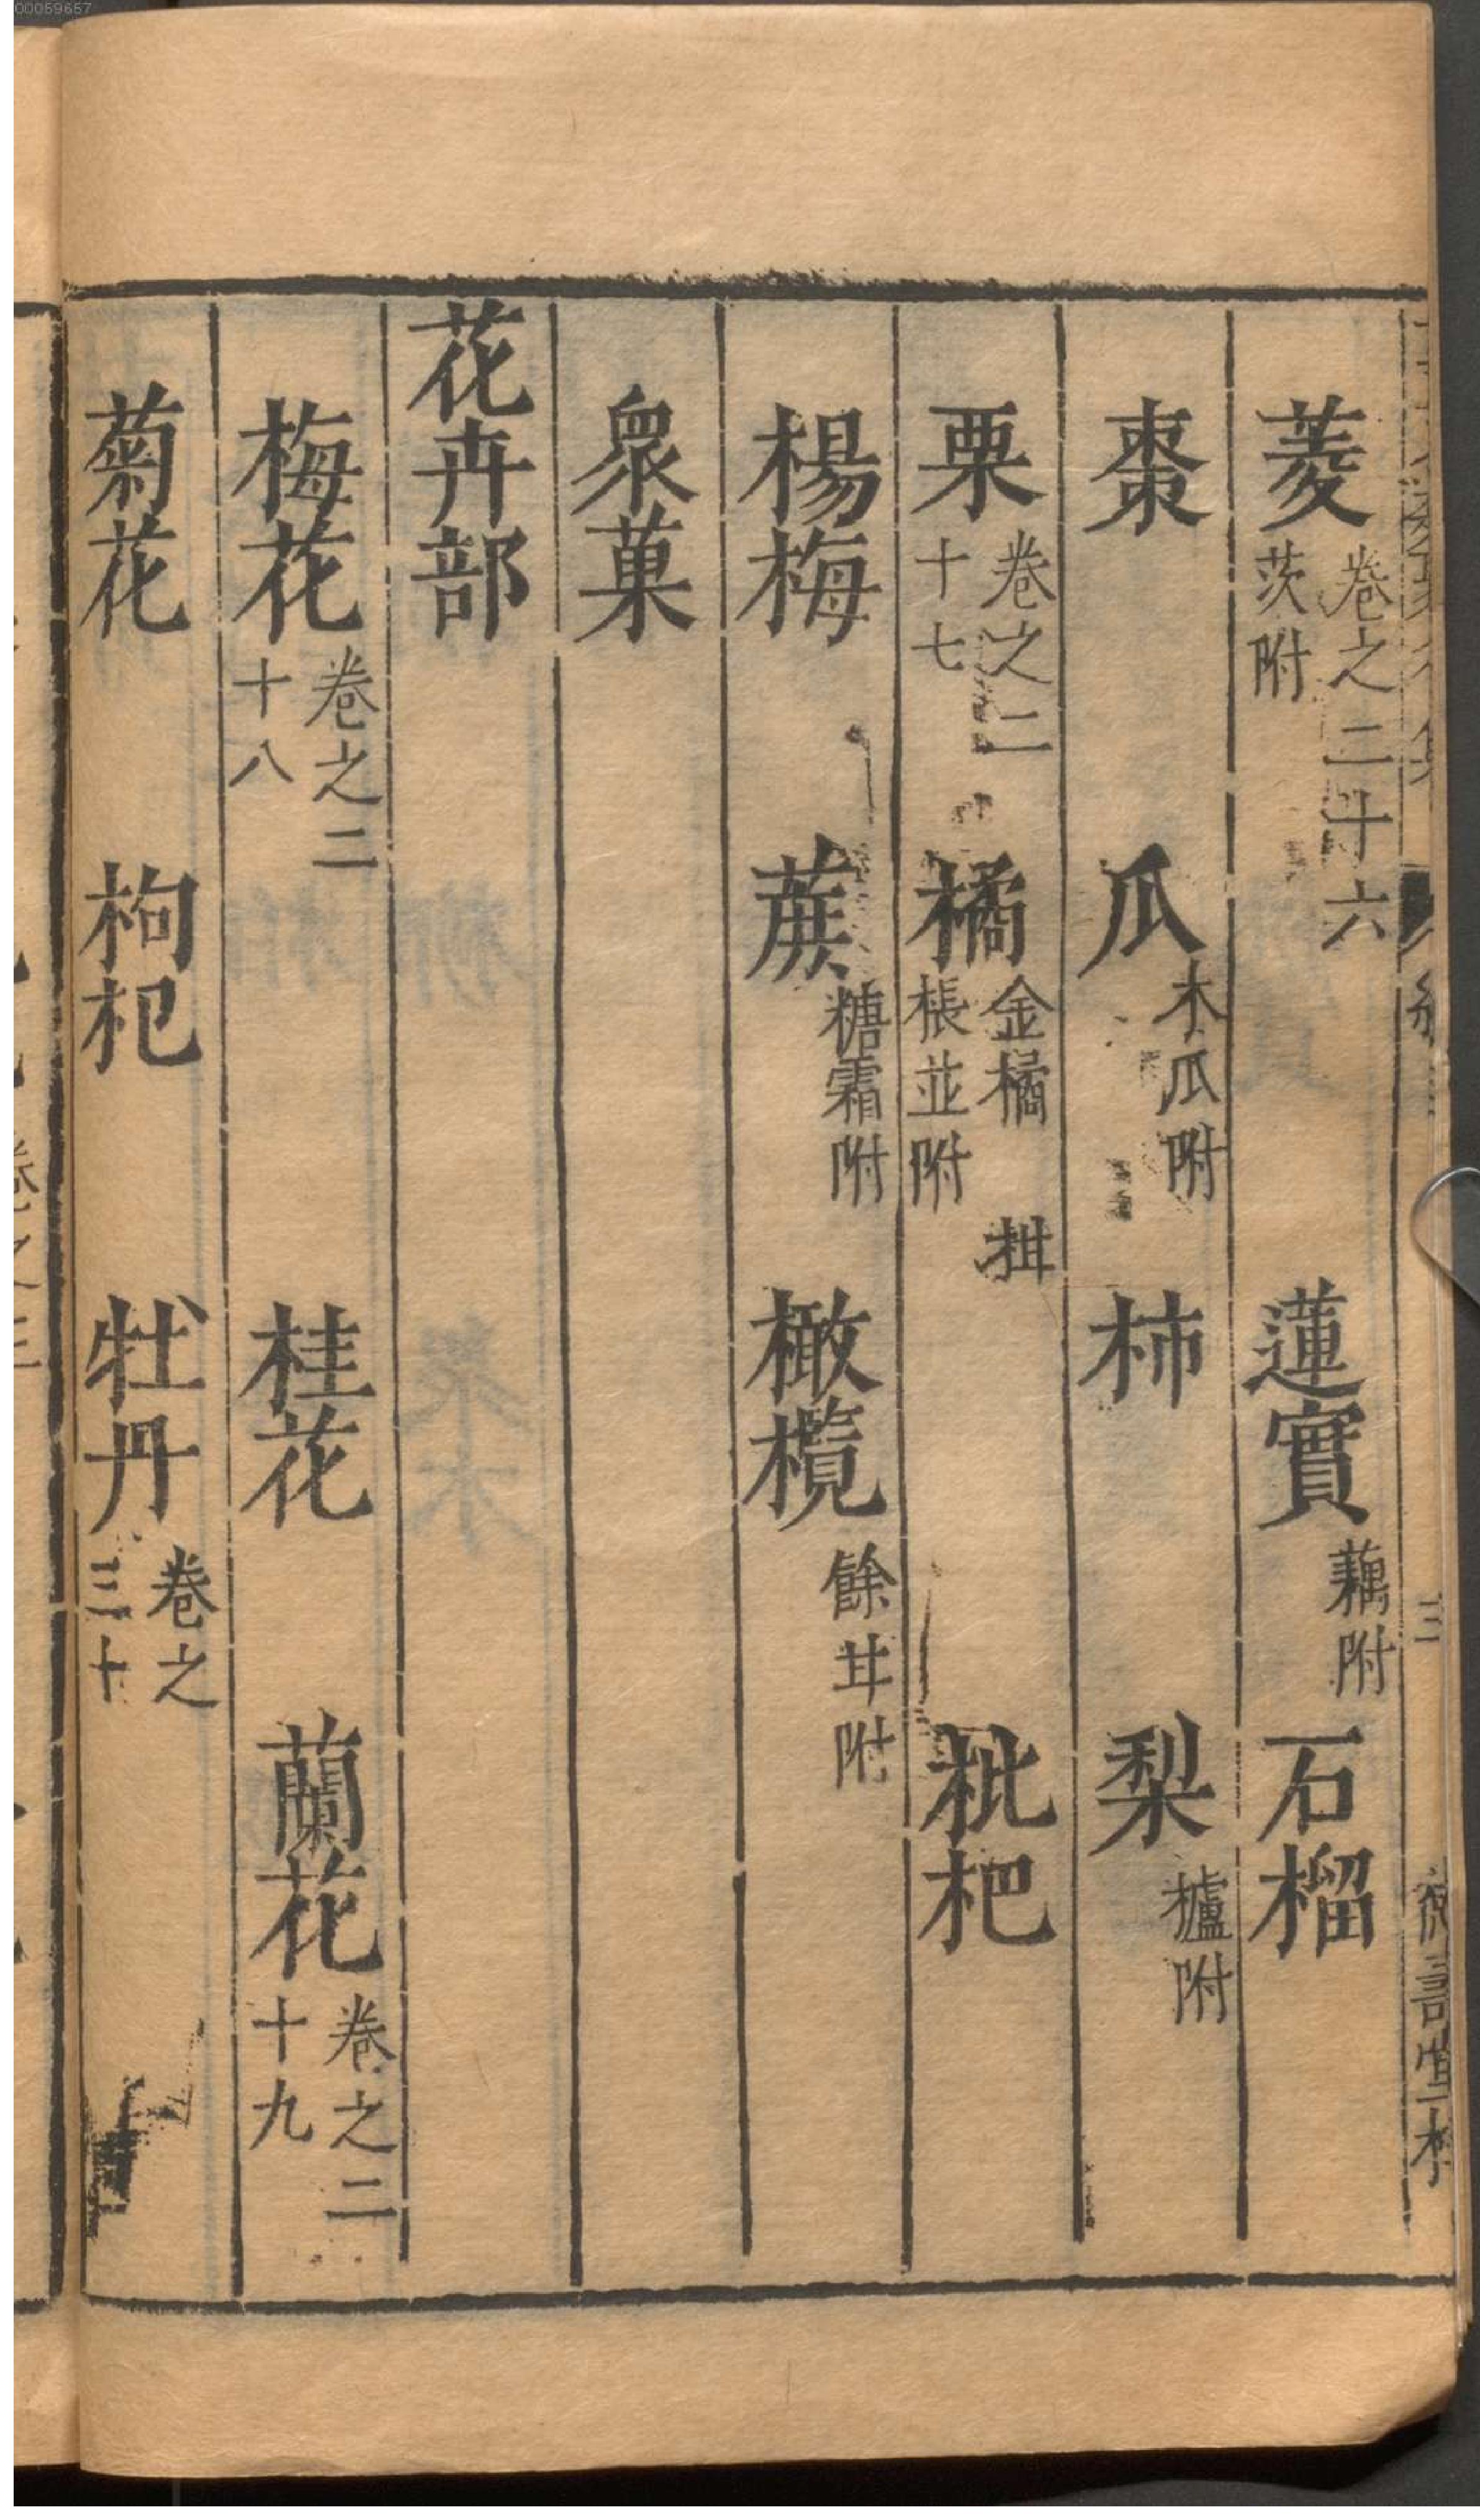 菱 卷之二十六 茨附 蓮實 藕附 石榴
棗 瓜 木瓜附 柿 梨 攎附
栗 卷之二十七 橘 金橘 柑 棖並附 枇杷
楊梅 蔗 糖霜附 橄欖 餘甘附
衆菓
花卉部
梅花 卷之二十八 桂花 蘭花 卷之二十九
菊花 枸杞 牡丹 卷之三十
00059657